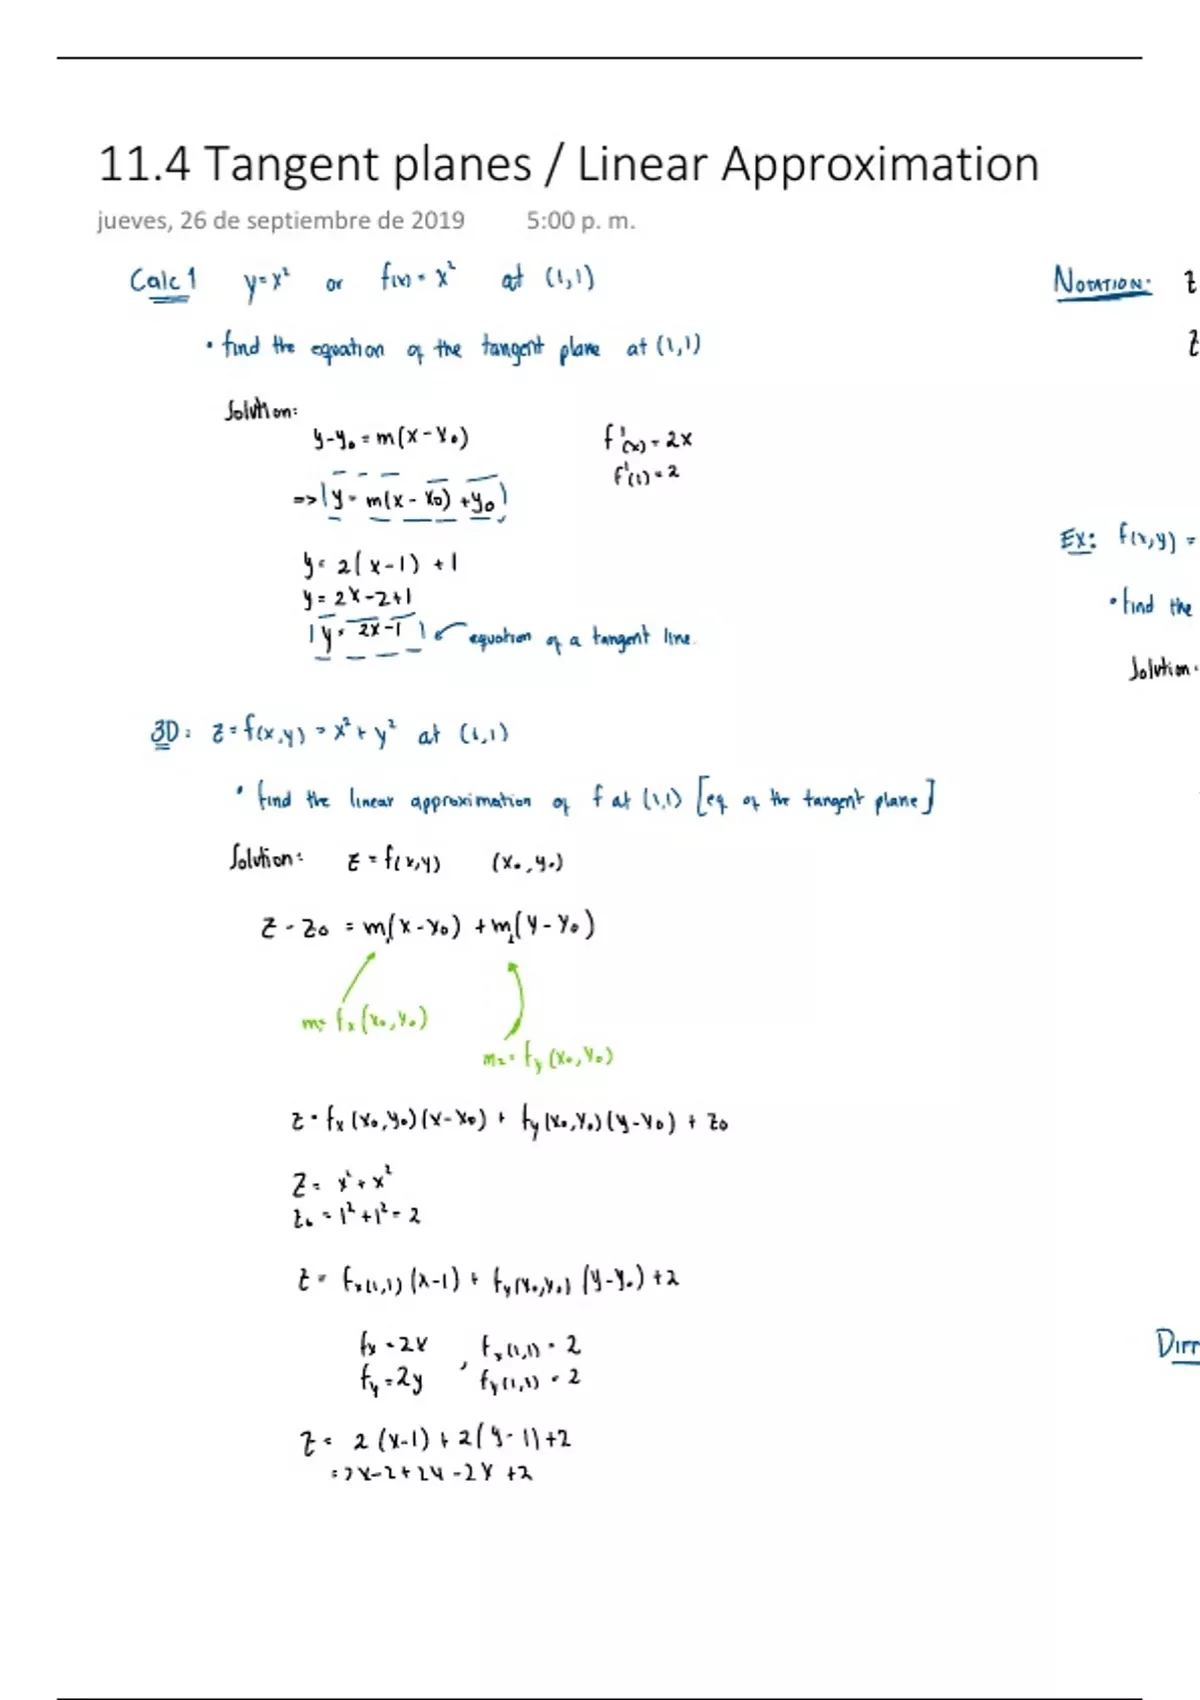 11.4 Tangent planes / Linear Approximation
jueves, 26 de septiembre de 2019 5:00 p. m.
Calc 1 y = x² or f(x) = x² at (1,1)
• find the equation of the tangent plane at (1,1)
Solution:
y-y₀ = m(x-x₀)
f'(x) = 2x
f'(1) = 2
=> y = m(x - x₀) + y₀
y = 2(x-1) + 1
y = 2x-2+1
y = 2x-1 equation of a tangent line.
3D: z = f(x,y) = x² + y² at (1,1)
• find the linear approximation of f at (1,1) [eq of the tangent plane]
Solution: z = f(x,y) (x₀, y₀)
z - z₀ = m₁(x-x₀) + m₂(y-y₀)
m₁= fx(x₀,y₀)
m₂ = fy(x₀,y₀)
z = fx(x₀,y₀)(x-x₀) + fy(x₀,y₀)(y-y₀) + z₀
z = x² + x²
z₀ = 1² + 1² = 2
z = fx(1,1)(x-1) + fy(x₀,y₀)(y-y₀) + 2
fx = 2x , fx(1,1) = 2
fy = 2y fy(1,1) = 2
z = 2(x-1) + 2(y-1) + 2
NOTATION: z
z
Ex: f(x,y) =
• find the
Solution: